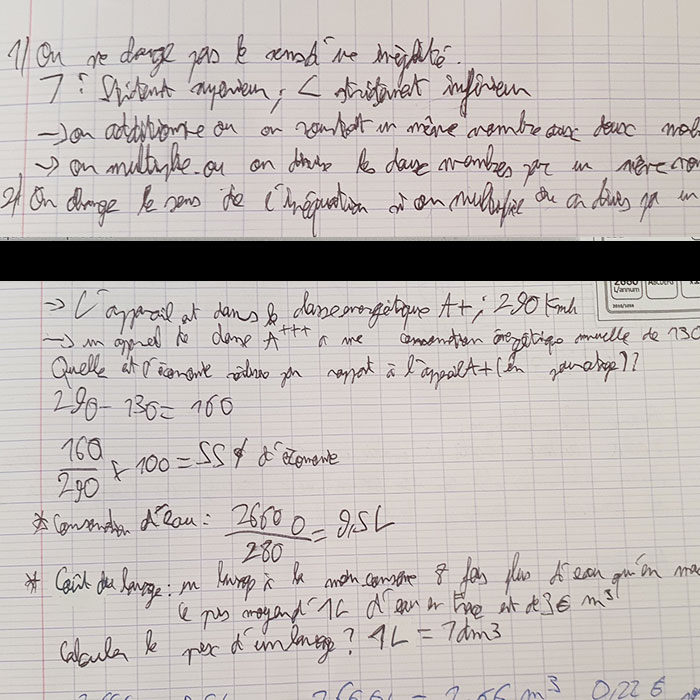 1) On ne change pas le sens d'une inégalité.
> : strictement supérieur ; < strictement inférieur
→ on additionne ou on soustrait un même nombre aux deux
→ on multiplie ou on divise les deux membres par un même
2) On change le sens de l'inéquation si on multiplie ou on divise par un
2660
L/annum
→ L'appareil est dans la classe énergétique A+ ; 290 Kwh
→ un appareil de classe A+++ a une consommation énergétique annuelle de 130
Quelle est l'économie réalisée par rapport à l'appareil A+ (en pourcentage) ?
290 - 130 = 160
160/290 × 100 = 55 % d'économie
* Consommation d'eau : 2660/280 = 9,5 L
* Coût du lavage : un lavage à la main consomme 8 fois plus d'eau qu'en
le prix moyen d'1L d'eau en France est de 3€ m³
Calculer le prix d'un lavage ? 1L = 1dm3
m³ 0,22 €